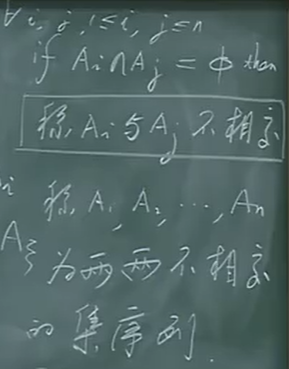 ∀i, j, 1≤i, j≤n
if Ai∩Aj = ϕ then
称 Ai 与 Aj 不相交
称 A1, A2, ⋯, An
为两两不相交
的集序列.